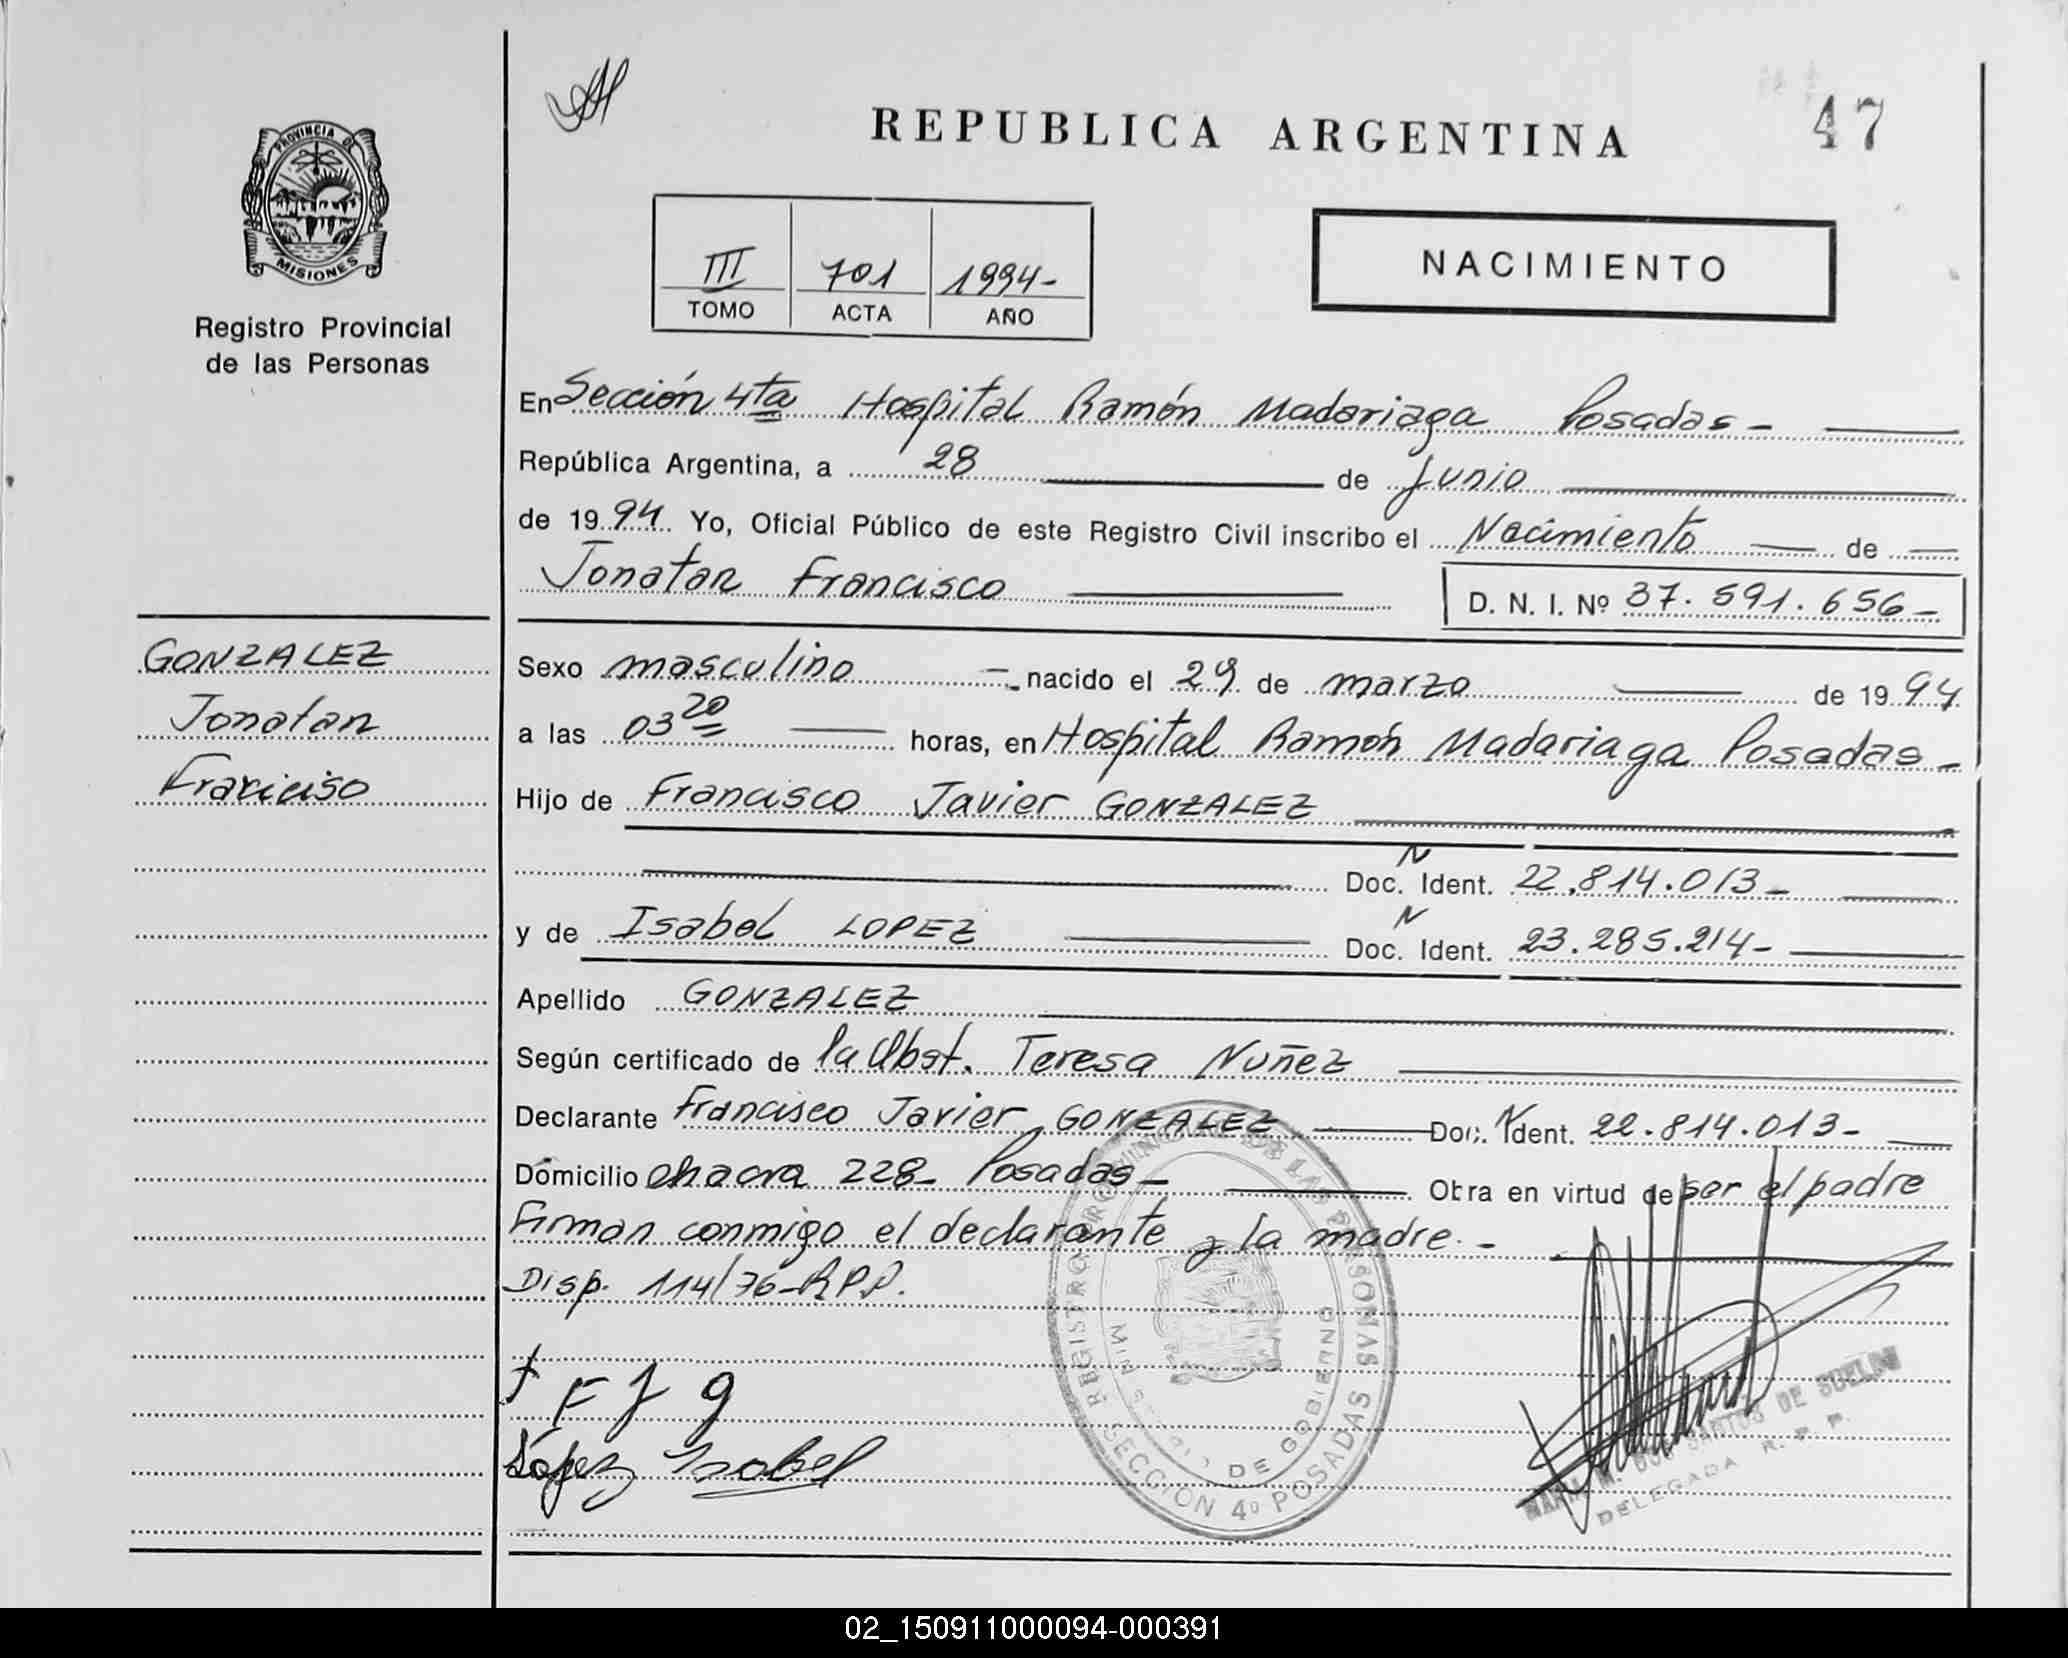 47
REPUBLICA ARGENTINA
PROVINCIA DE
MISIONES
Registro Provincial
de las Personas
III 701 1994-
TOMO ACTA AÑO
NACIMIENTO
En Sección 4ta Hospital Ramón Madariaga Posadas -
República Argentina, a 28 de Junio
de 1994 Yo, Oficial Público de este Registro Civil inscribo el Nacimiento de
Jonatan Francisco D. N. I. Nº 37.591.656-
GONZALEZ
Jonatan
Francisco
Sexo masculino - nacido el 29 de marzo de 1994
a las 03 20 horas, en Hospital Ramón Madariaga Posadas -
Hijo de Francisco Javier GONZALEZ
Doc. N Ident. 22.814.013-
y de Isabel LOPEZ Doc. N Ident. 23.285.214-
Apellido GONZALEZ
Según certificado de la Obst. Teresa Nuñez
Declarante Francisco Javier GONZALEZ Doc. N Ident. 22.814.013-
Domicilio chacra 228- Posadas - Obra en virtud de ser el padre
Firman conmigo el declarante y la madre. -
Disp. 114/76-RPP.
F J g
López Isabel
REGISTRO PROVINCIAL DE LAS PERSONAS
DE GOBIERNO
SECCION 4º POSADAS
DOS SANTOS DE SUELINI
DELEGADA R. P. P.
02_150911000094-000391